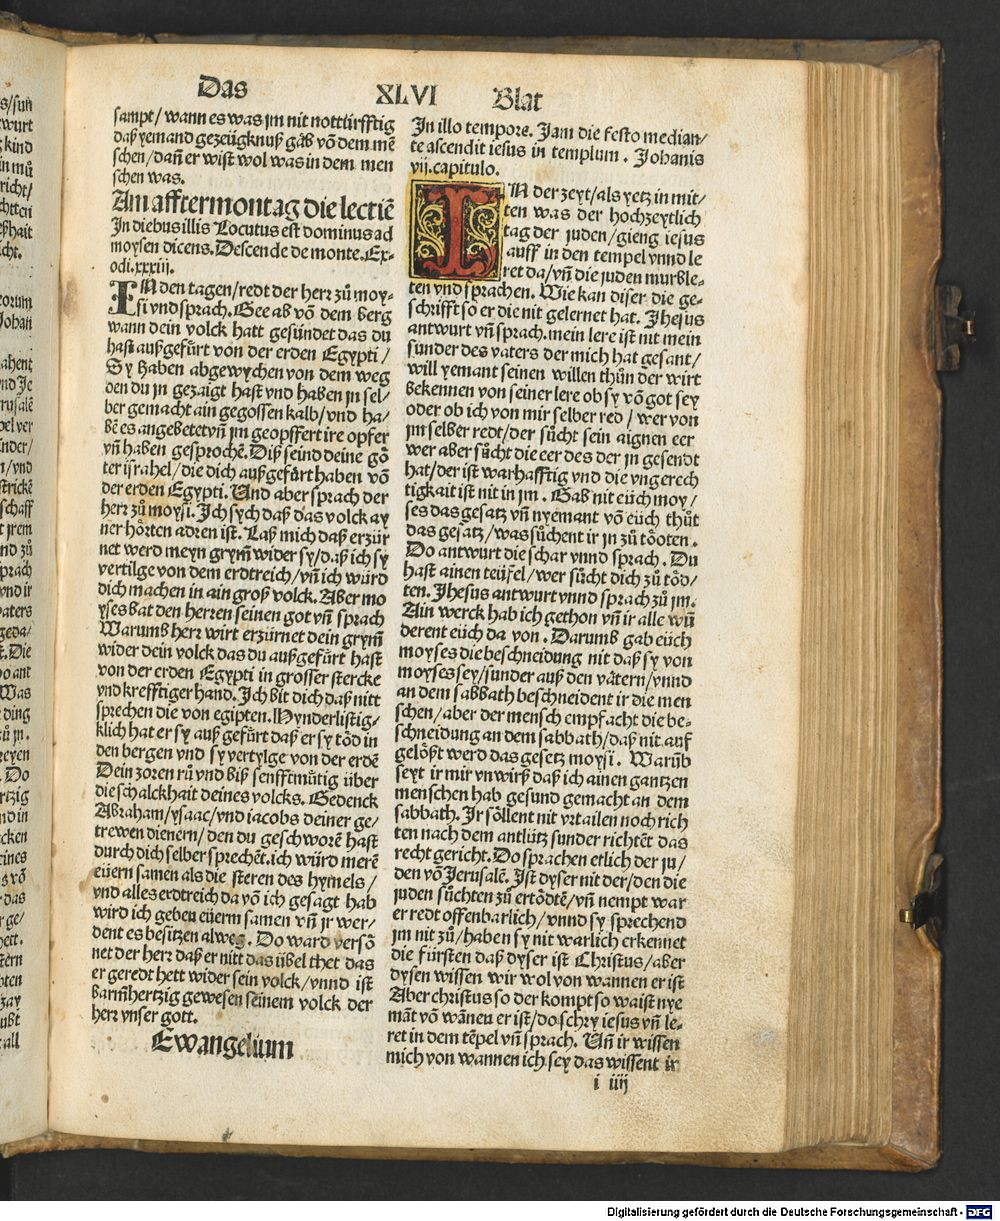 Das XLVI Blat
sampt/ wann es was jm nit nottürfftig
daß yemand gezeügknuß gåb vō dem mē
schen/dañ er wißt wol was in dem men
schen was.
Am afftermontag die lectiē
In diebus illis Locutus est dominus ad
moysen dicens. Descende de monte. Ex-
odi.xxxiij.
IN den tagen/redt der herr zů moy-
si vnd sprach. Gee ab vō dem berg
wann dein volck hatt gesündet das du
hast außgefůrt von der erden Egypti/
Sy haben abgewychen von dem weg
den du jn gezaigt hast vnd haben jn sel-
ber gemacht ain gegossen kalb/vnd ha-
bē es angebetet vñ jm geopffert ire opfer
vñ haben gesprochē. Diß seind deine gȫ
ter israhel/die dich außgefůrt haben vō
der erden Egypti. Und aber sprach der
herr zů moysi. Ich sych daß das volck ay
ner hörten adren ist. Laß mich daß erzür
net werd meyn grym̄ wider sy/daß ich sy
vertilge von dem erdtreich/vñ ich würd
dich machen in ain groß volck. Aber mo
yses bat den herren seinen got vñ sprach
Warumb herr wirt erzürnet dein grym̄
wider dein volck das du außgefůrt hast
von der erden Egypti in grosser stercke
vnd krefftiger hand. Ich bit dich daß nitt
sprechen die von egipten. Hynderlistig-
klich hat er sy auß gefůrt daß er sy tȫd in
den bergen vnd sy vertylge von der erdē
Dein zoren rů vnd biß senfftmůtig über
die schalckhait deines volcks. Gedenck
Abraham/ysaac/vnd iacobs deiner ge-
trewen dienern/den du geschworē hast
durch dich selber sprechēt.ich würd merē
eüern samen als die steren des hymels/
vnd alles erdtreich da vō ich gesagt hab
wird ich geben eüerm samen vñ jr wer-
dent es besitzen alweg. Do ward versō
net der herr daß er nitt das übel thet das
er geredt hett wider sein volck/vnnd ist
barm̄hertzig gewesen seinem volck der
herr vnser gott.
Ewangelium
In illo tempore. Jam die festo median-
te ascendit iesus in templum. Johanis
vij.capitulo.
IN der zeyt/als yetz in mit-
ten was der hochzeytlich
tag der juden/gieng iesus
auff in den tempel vnnd le
ret da/vñ die juden murble-
ten vnd sprachen. Wie kan diser die ge-
schrifft so er die nit gelernet hat. Jhesus
antwurt vñ sprach.mein lere ist nit mein
sunder des vaters der mich hat gesant/
will yemant seinen willen thůn der wirt
bekennen von seiner lere ob sy vō got sey
oder ob ich von mir selber red/ wer von
jm selber redt/der sůcht sein aignen eer
wer aber sůcht die eer des der jn gesendt
hat/der ist warhafftig vnd die vngerech
tigkait ist nit in jm. Gab nit eüch moy/
ses das gesatz vñ nyemant vō eüch thůt
das gesatz/was sůchent ir jn zů töoten.
Do antwurt die schar vnnd sprach. Du
hast ainen teüfel/wer sůcht dich zů töd/
ten. Jhesus antwurt vnnd sprach zů jm.
Ain werck hab ich gethon vñ ir alle wū
derent eüch da von. Darumb gab eüch
moyses die beschneidung nit daß sy von
moyses sey/sunder auß den vätern/vnnd
an dem sabbath beschneident ir die men
schen/aber der mensch empfacht die be-
schneidung an dem sabbath/daß nit auf
gelößt werd das gesetz moysi. Warūb
seyt ir mir vnwirß daß ich ainen gantzen
menschen hab gesund gemacht an dem
sabbath. Ir söllent nit vrtailen noch rich
ten nach dem antlütz sunder richtēt das
recht gericht. Do sprachen etlich der ju/
den vō Jerusalē. Ist dyser nit der/den die
juden sůchten zů ertödtē/vñ nempt war
er redt offenbarlich/vnnd sy sprechend
jm nit zů/haben sy nit warlich erkennet
die fürsten daß dyser ist Christus/aber
dysen wissen wir wol von wannen er ist
Aber christus so der kompt so waist nye
māt vō wānen er ist/do schry iesus vñ le-
ret in dem tēpel vñ sprach. Uñ ir wissen
mich von wannen ich sey das wissent ir
i iiij
Digitalisierung gefördert durch die Deutsche Forschungsgemeinschaft - DFG